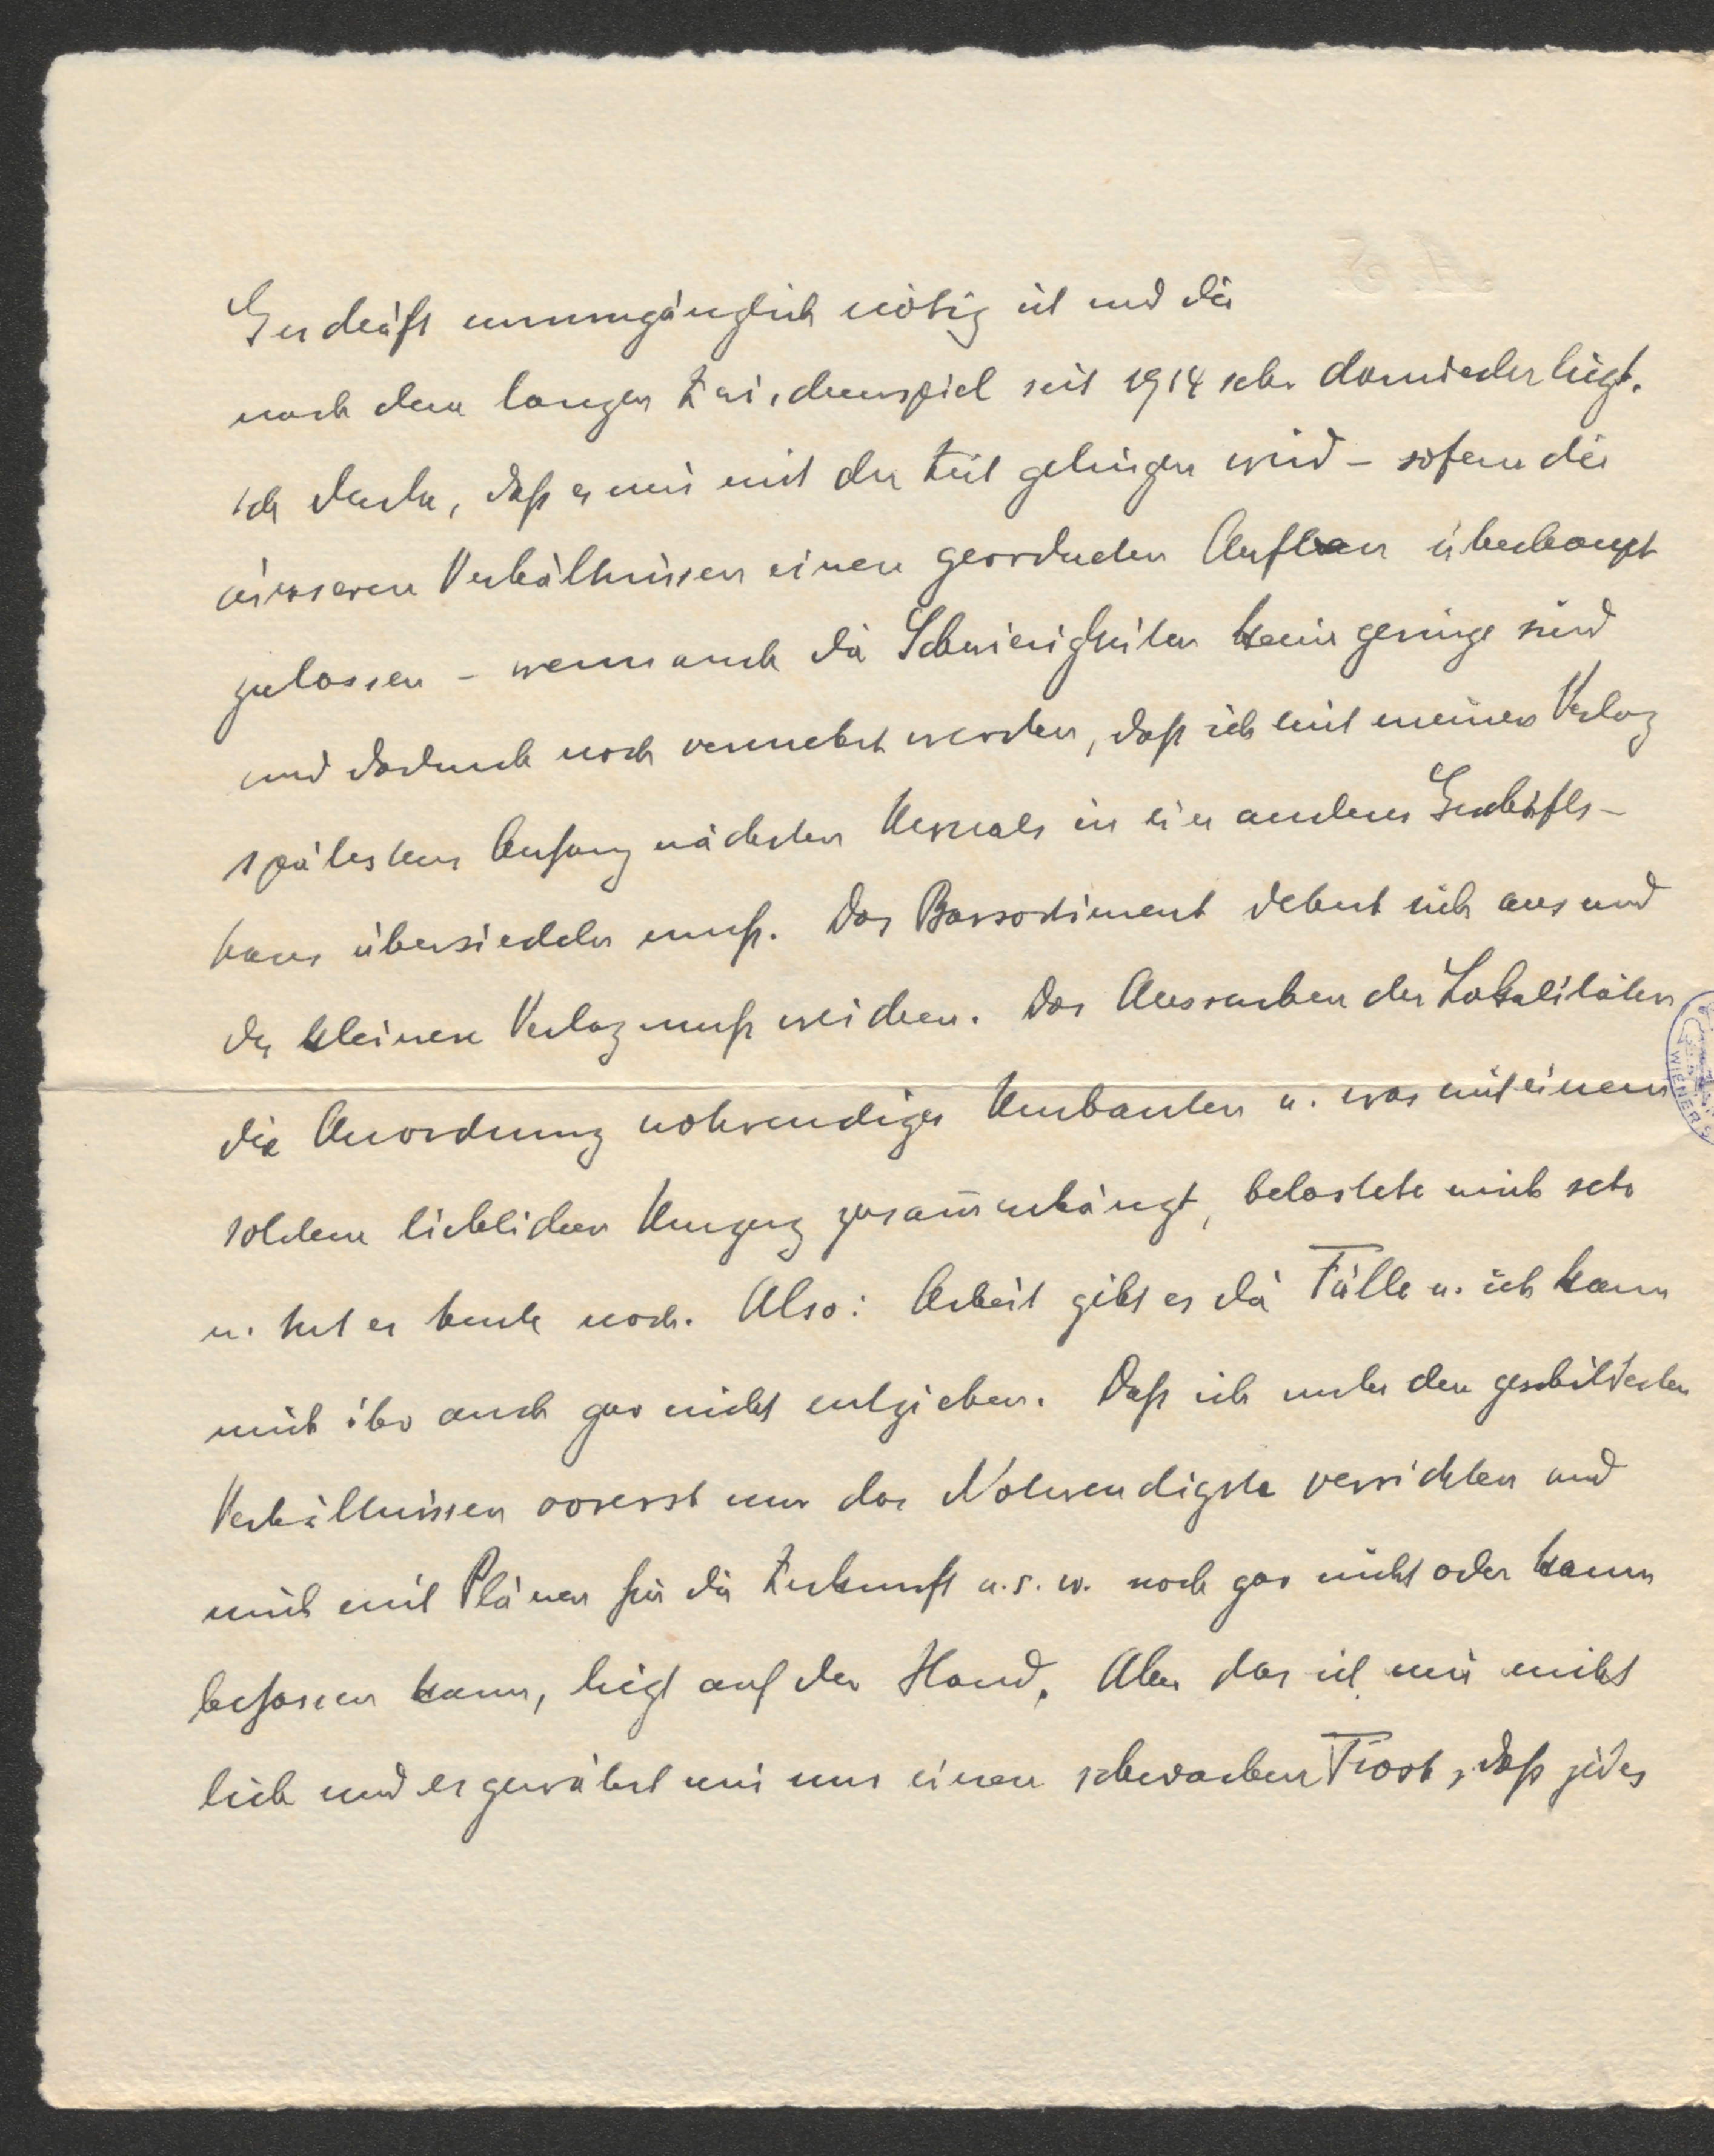 Geschäft unumgänglich nötig ist und die
nach dem langen Zwischenspiel seit 1914 sehr darniederliegt.
Ich denke, daß es mir mit der Zeit gelingen wird – sofern die
äusseren Verhältnissen einen geordneten Aufbau überhaupt
zulassen – wenn auch die Schwierigkeiten keine geringe sind
und dadurch noch vermehrt werden, daß ich mit meinem Verlag
spätestens Anfang nächsten Monats in ein anderes Geschäfts-
haus übersiedeln muß. Das Barsortiment dehnt sich aus und
der kleinere Verlag muß weichen. Das Aussuchen der Lokalitäten
die Anordnung notwendiger Umbauten u. was mit einem
solchen lieblichen Umzug zusam̅enhängt, belastete mich sehr
u. tut es heute noch. Also: Arbeit gibt es die Fülle u. ich kann
mich ihr auch gar nicht entziehen. Daß ich unter den geschilderten
Verhältnissen vorerst nur das Notwendigste verrichten und
mich mit Plänen für die Zukunft u.s.w. noch gar nicht oder kaum
befassen kann, liegt auf der Hand. Aber das ist mir nicht
lieb und es gewährt mir nur einen schwachen Trost, daß jedes
WIENER